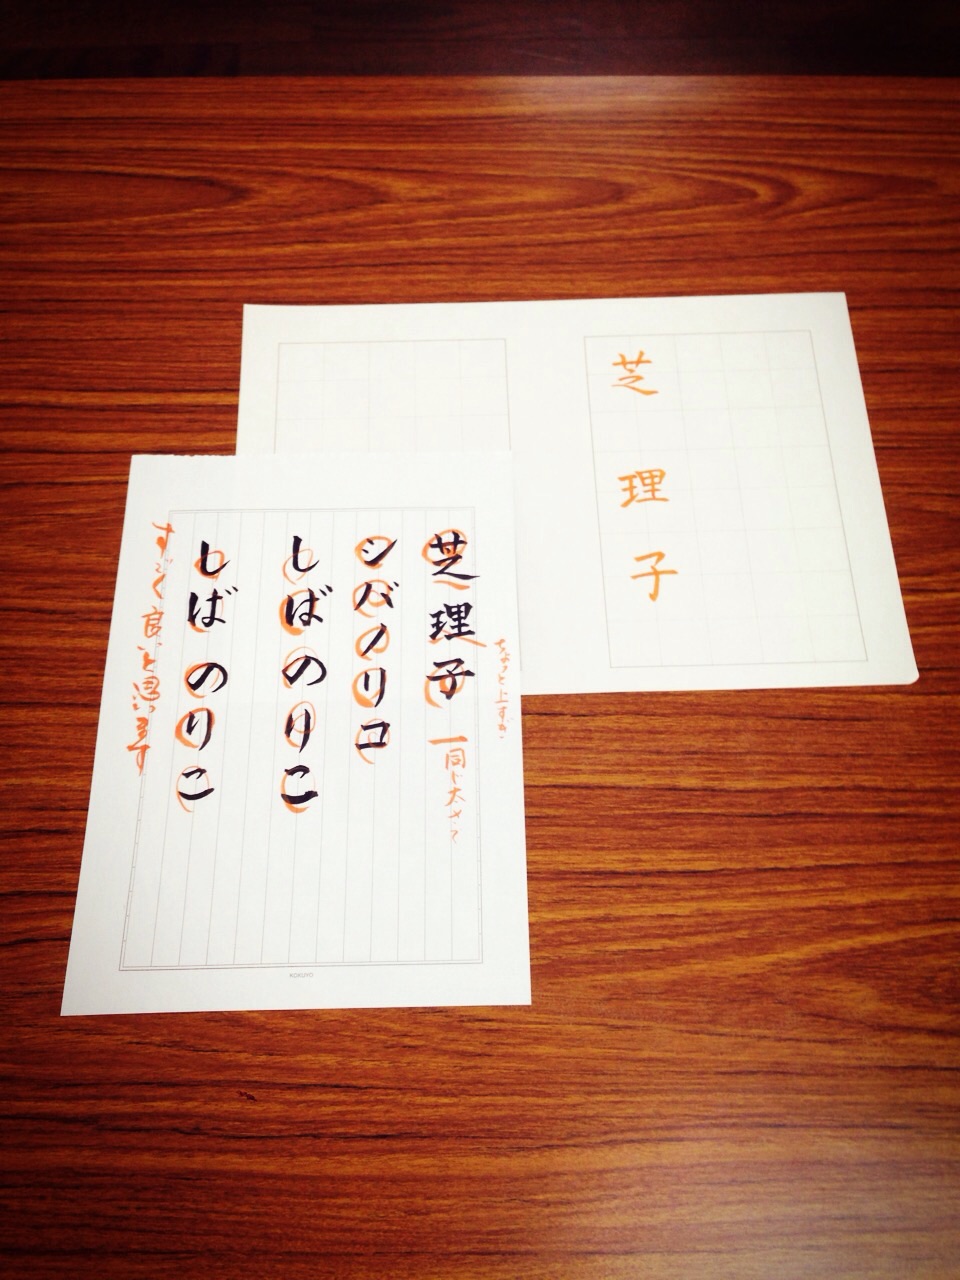 芝理子
芝理子
ちょっと上すぎ
一同じ太さで
シバノリコ
しばのりこ
しばのりこ
すごく良いと思います
KOKUYO